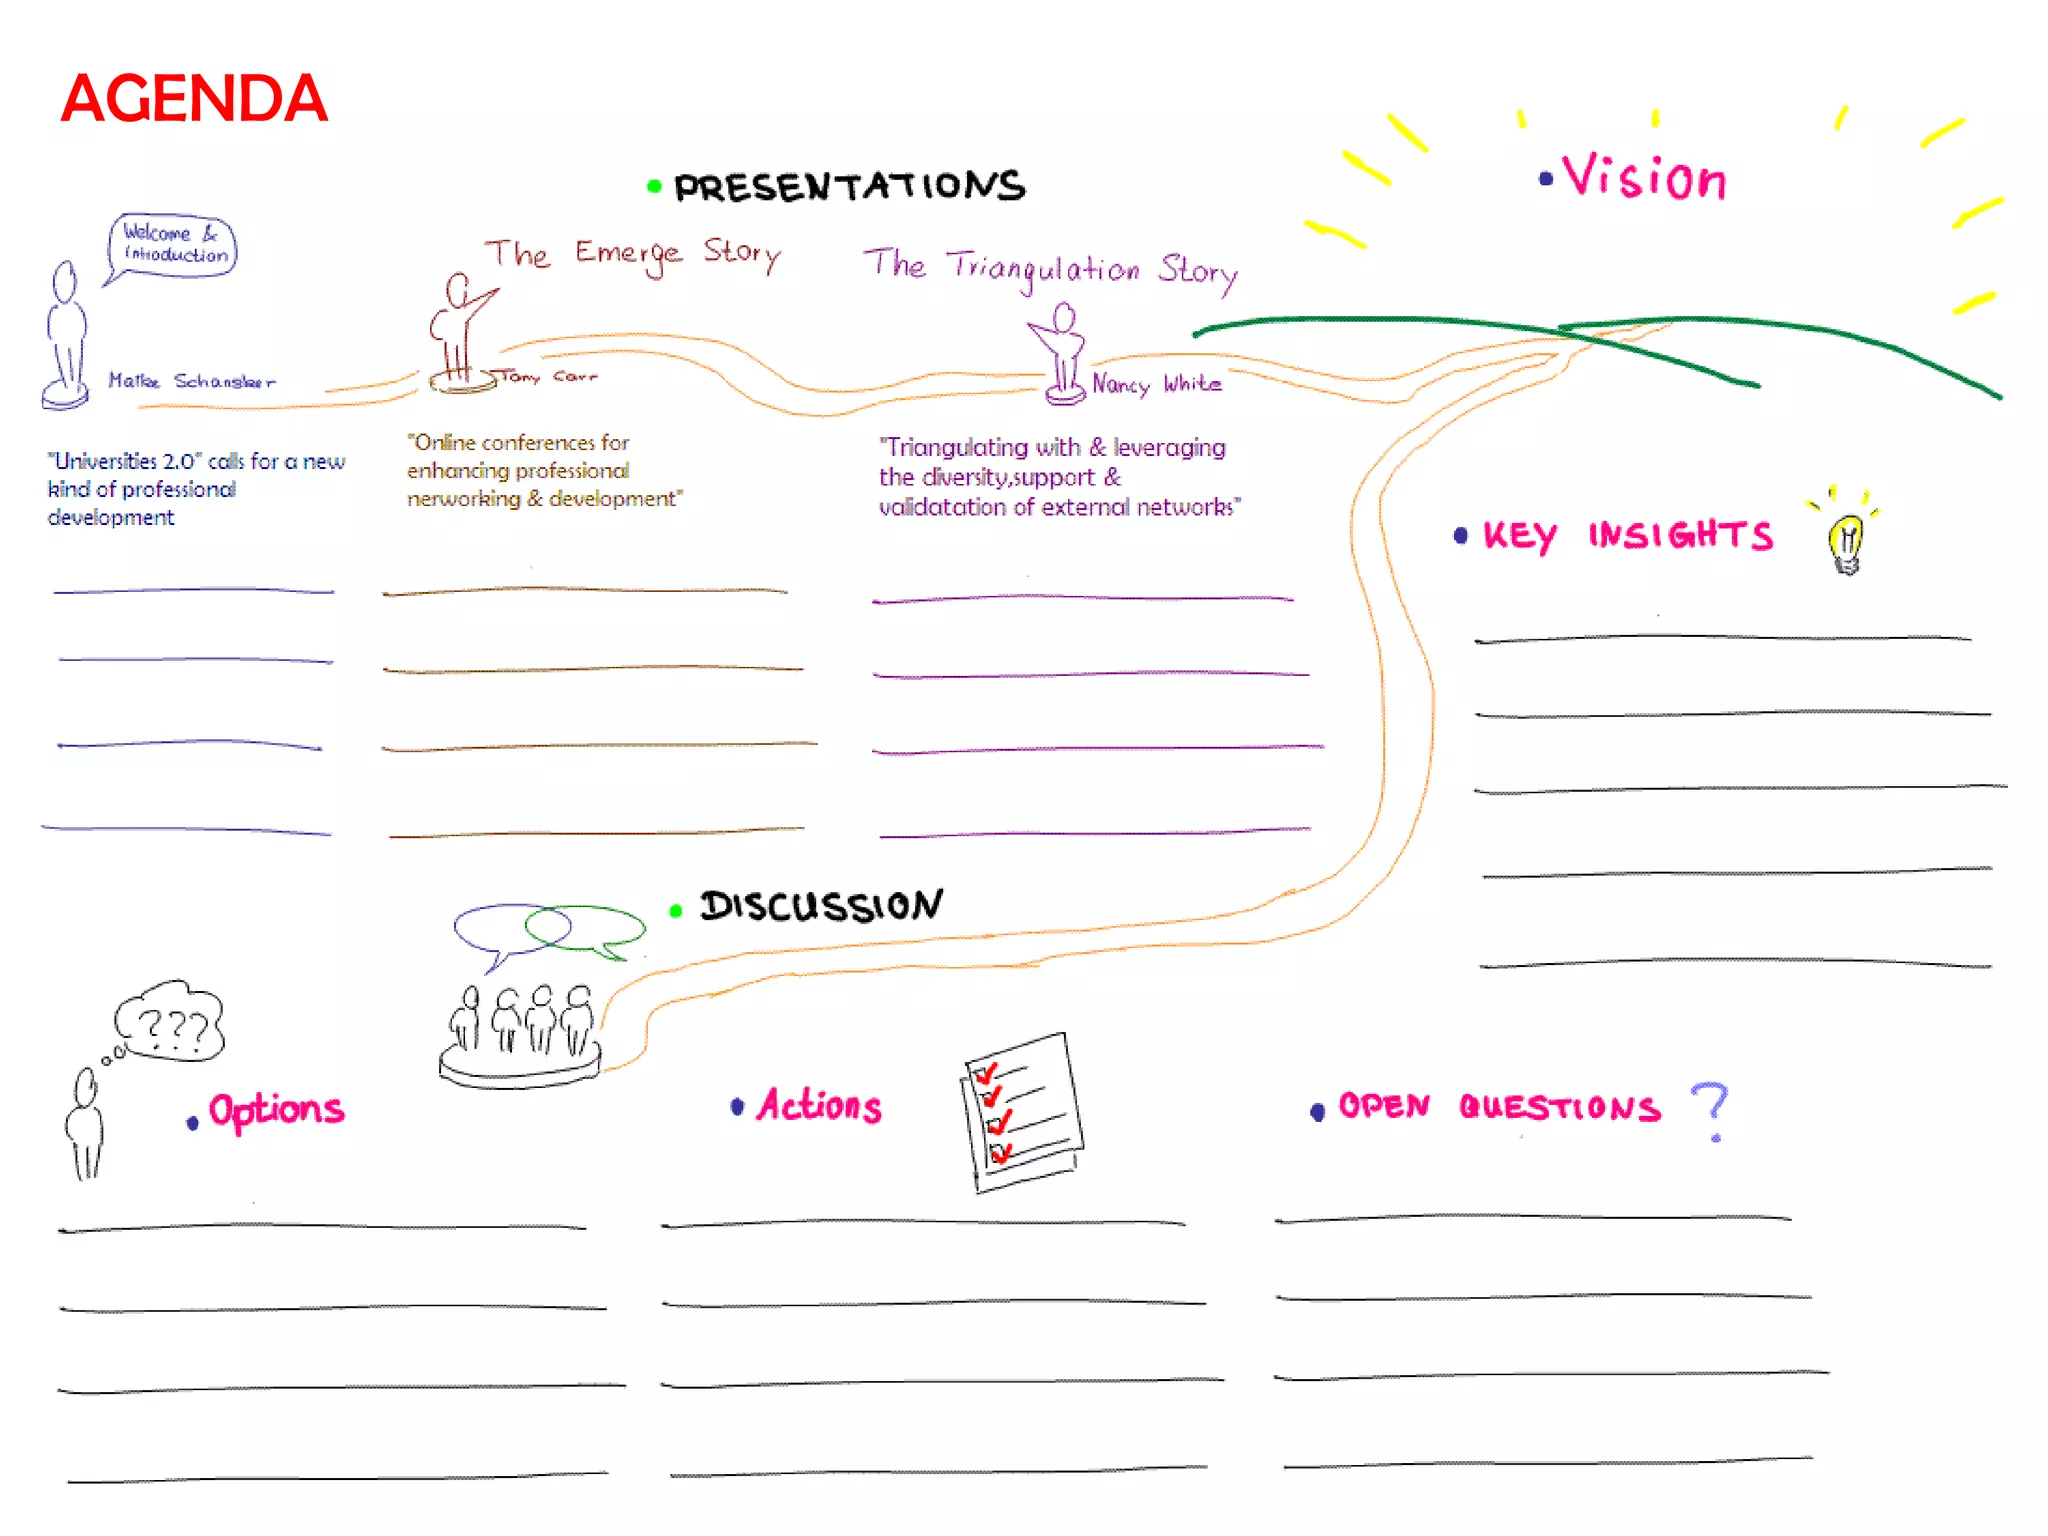 AGENDA
• PRESENTATIONS
• Vision
Welcome &
introduction
The Emerge Story
The Triangulation Story
Tony Carr
Nancy White
"Universities 2.0" calls for a new
kind of professional
development
"Online conferences for
enhancing professional
nerworking & development"
"Triangulating with & leveraging
the diversity,support &
validatation of external networks"
• KEY INSIGHTS
• DISCUSSION
???
• Options
• Actions
• OPEN QUESTIONS ?